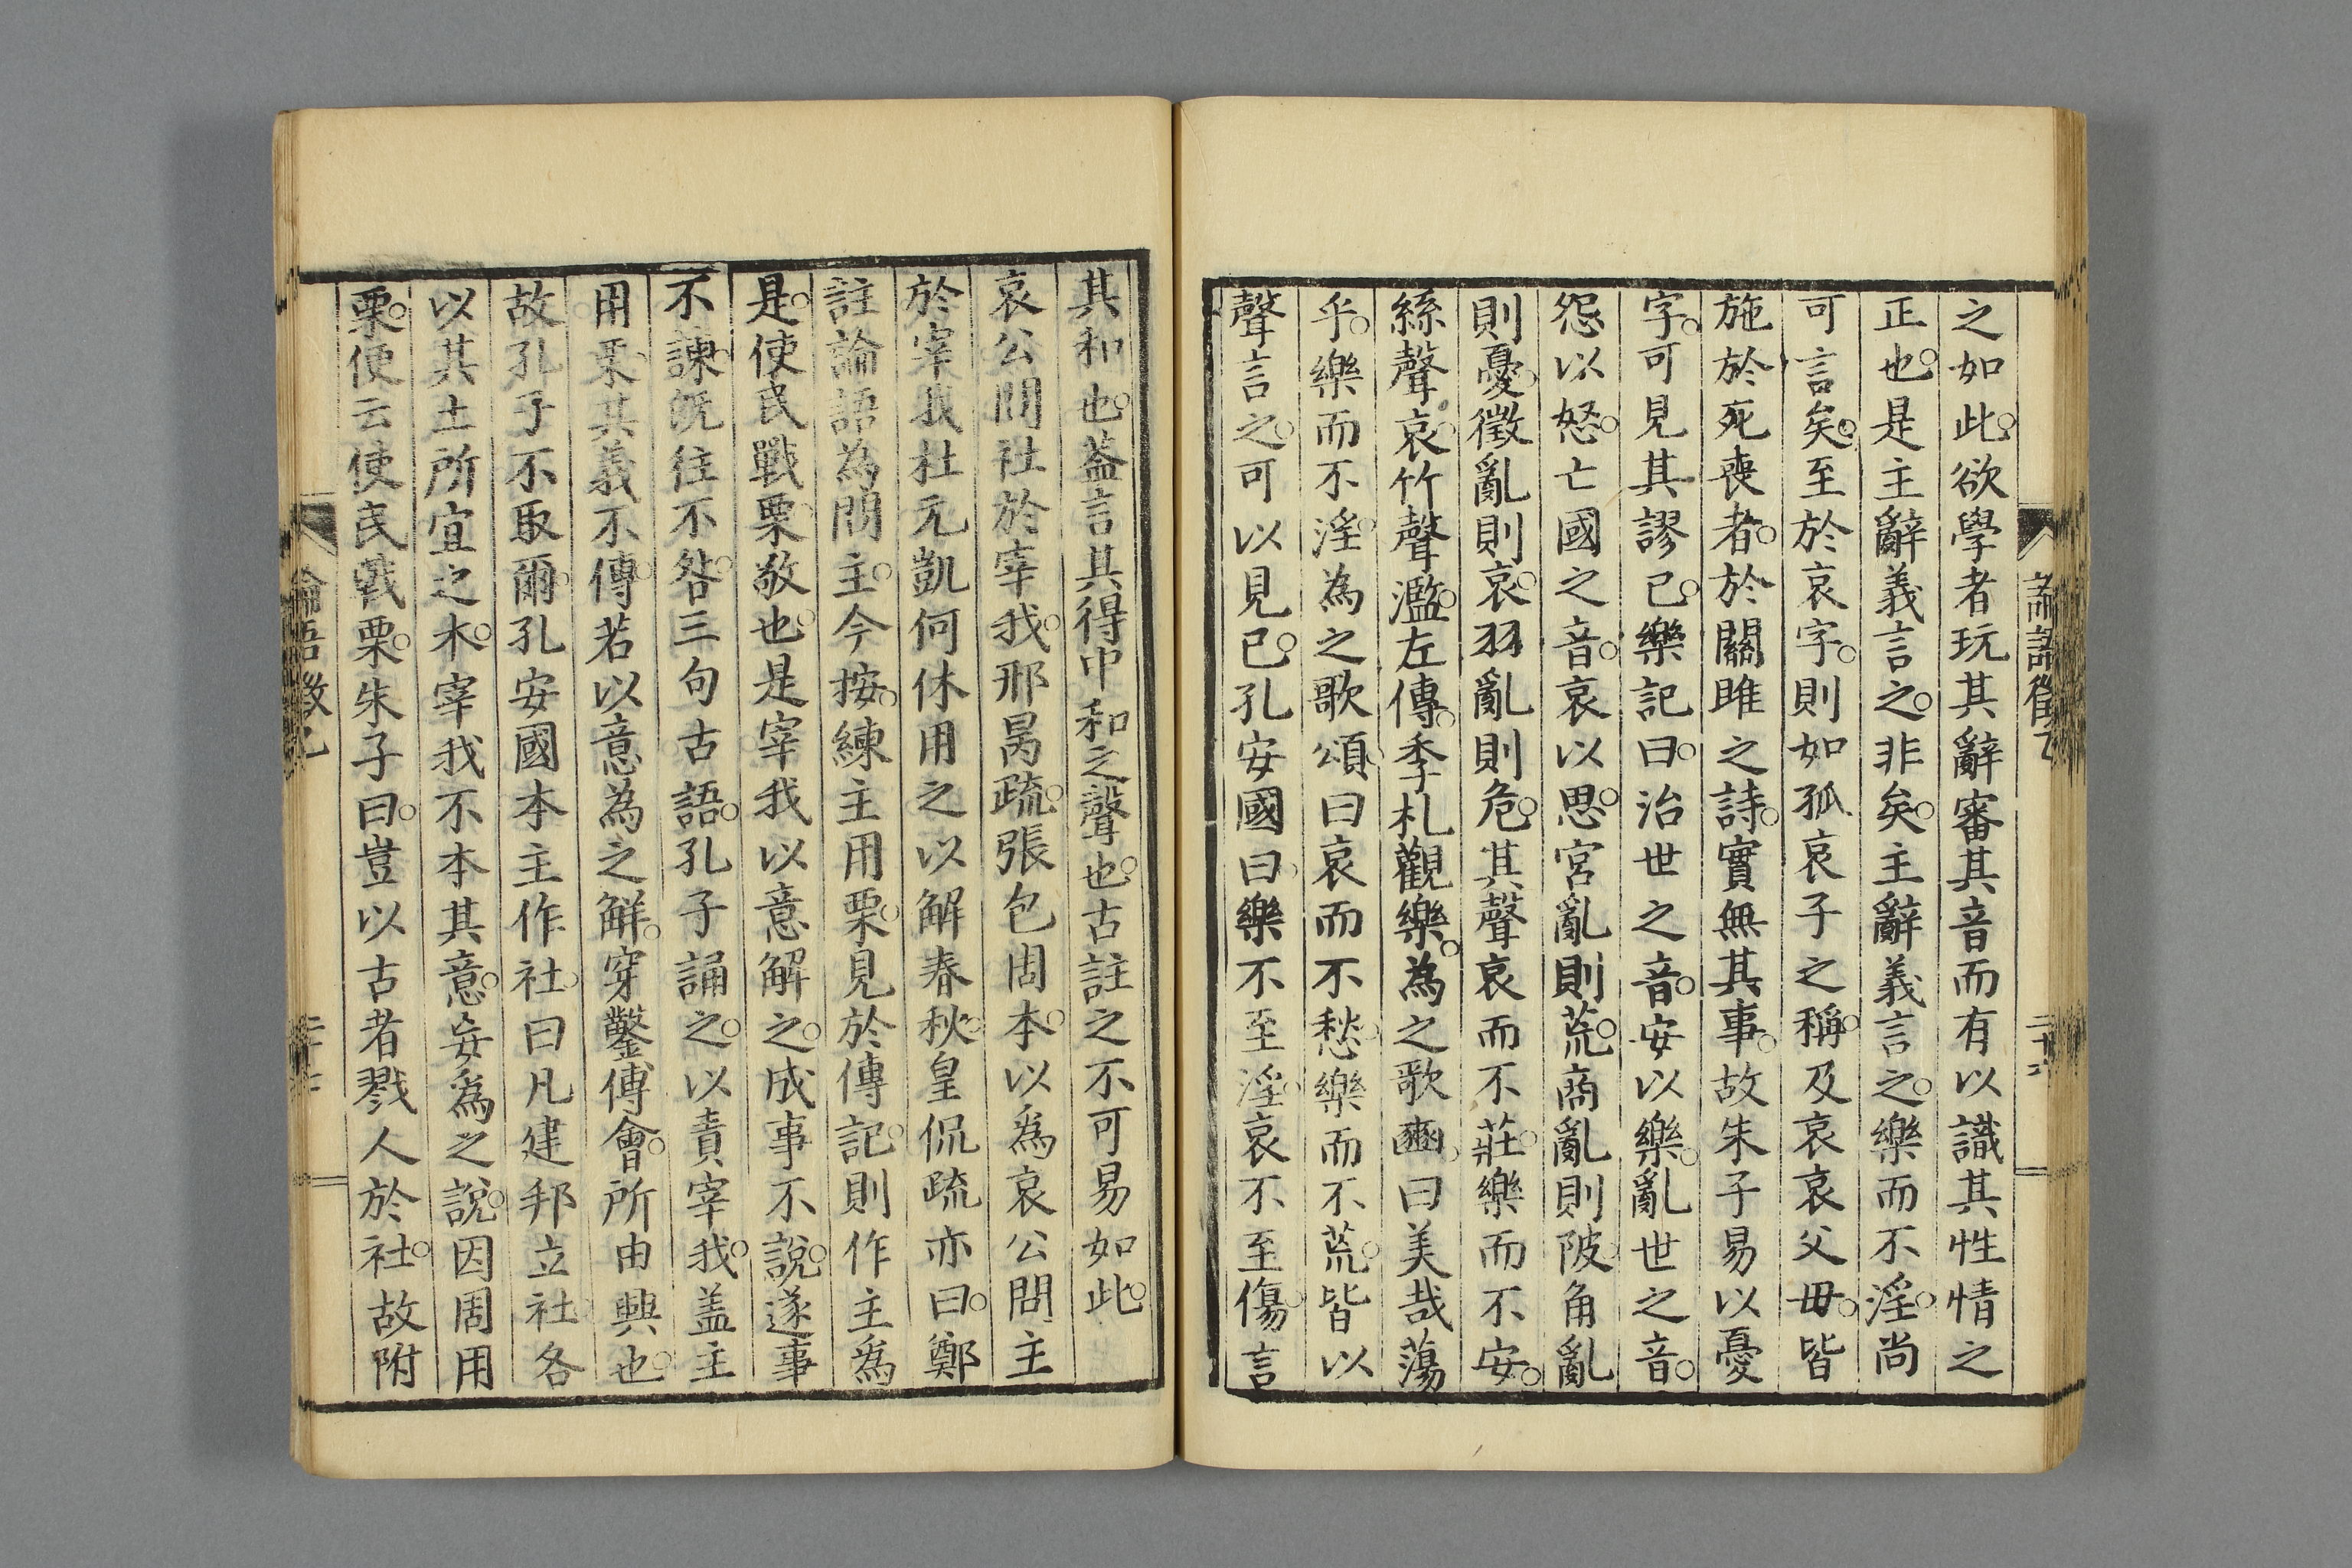 之如此欲學者玩其辭審其音而有以識其性情之
正也是主辭義言之非矣主辭義言之樂而不淫尚
可言矣至於哀字則如孤哀子之稱及哀哀父毋皆
施於死喪者於關雎之詩實無其事故朱子易以憂
字可見其謬已樂記曰治世之音安以樂亂世之音
怨以怒亡國之音哀以思宮亂則荒商亂則陂角亂
則憂徵亂則哀羽亂則危其聲哀而不莊樂而不安
絲聲哀竹聲濫左傳季札觀樂為之歌豳曰美哉蕩
乎樂而不淫為之歌頌曰哀而不愁樂而不荒皆以
聲言之可以見已孔安國曰樂不至淫哀不至傷言
其和也蓋言其得中和之聲也古註之不可易如此
哀公問社於宰我邢昺疏張包周本以爲哀公問主
於宰我杜元凱何休用之以解春秋皇侃疏亦曰鄭
註論語為問主今按練主用栗見於傳記則作主爲
是使民戰栗敬也是宰我以意解之成事不說遂事
不諫旣往不咎三句古語孔子誦之以責宰我盖主
用栗其義不傳若以意為之解穿鑿傅會所由興也
故孔子不取爾孔安國本主作社曰凡建邦立社各
以其土所宜之木宰我不本其意妄爲之說因周用
栗便云使民戰栗朱子曰豈以古者戮人於社故附
論語徵乙